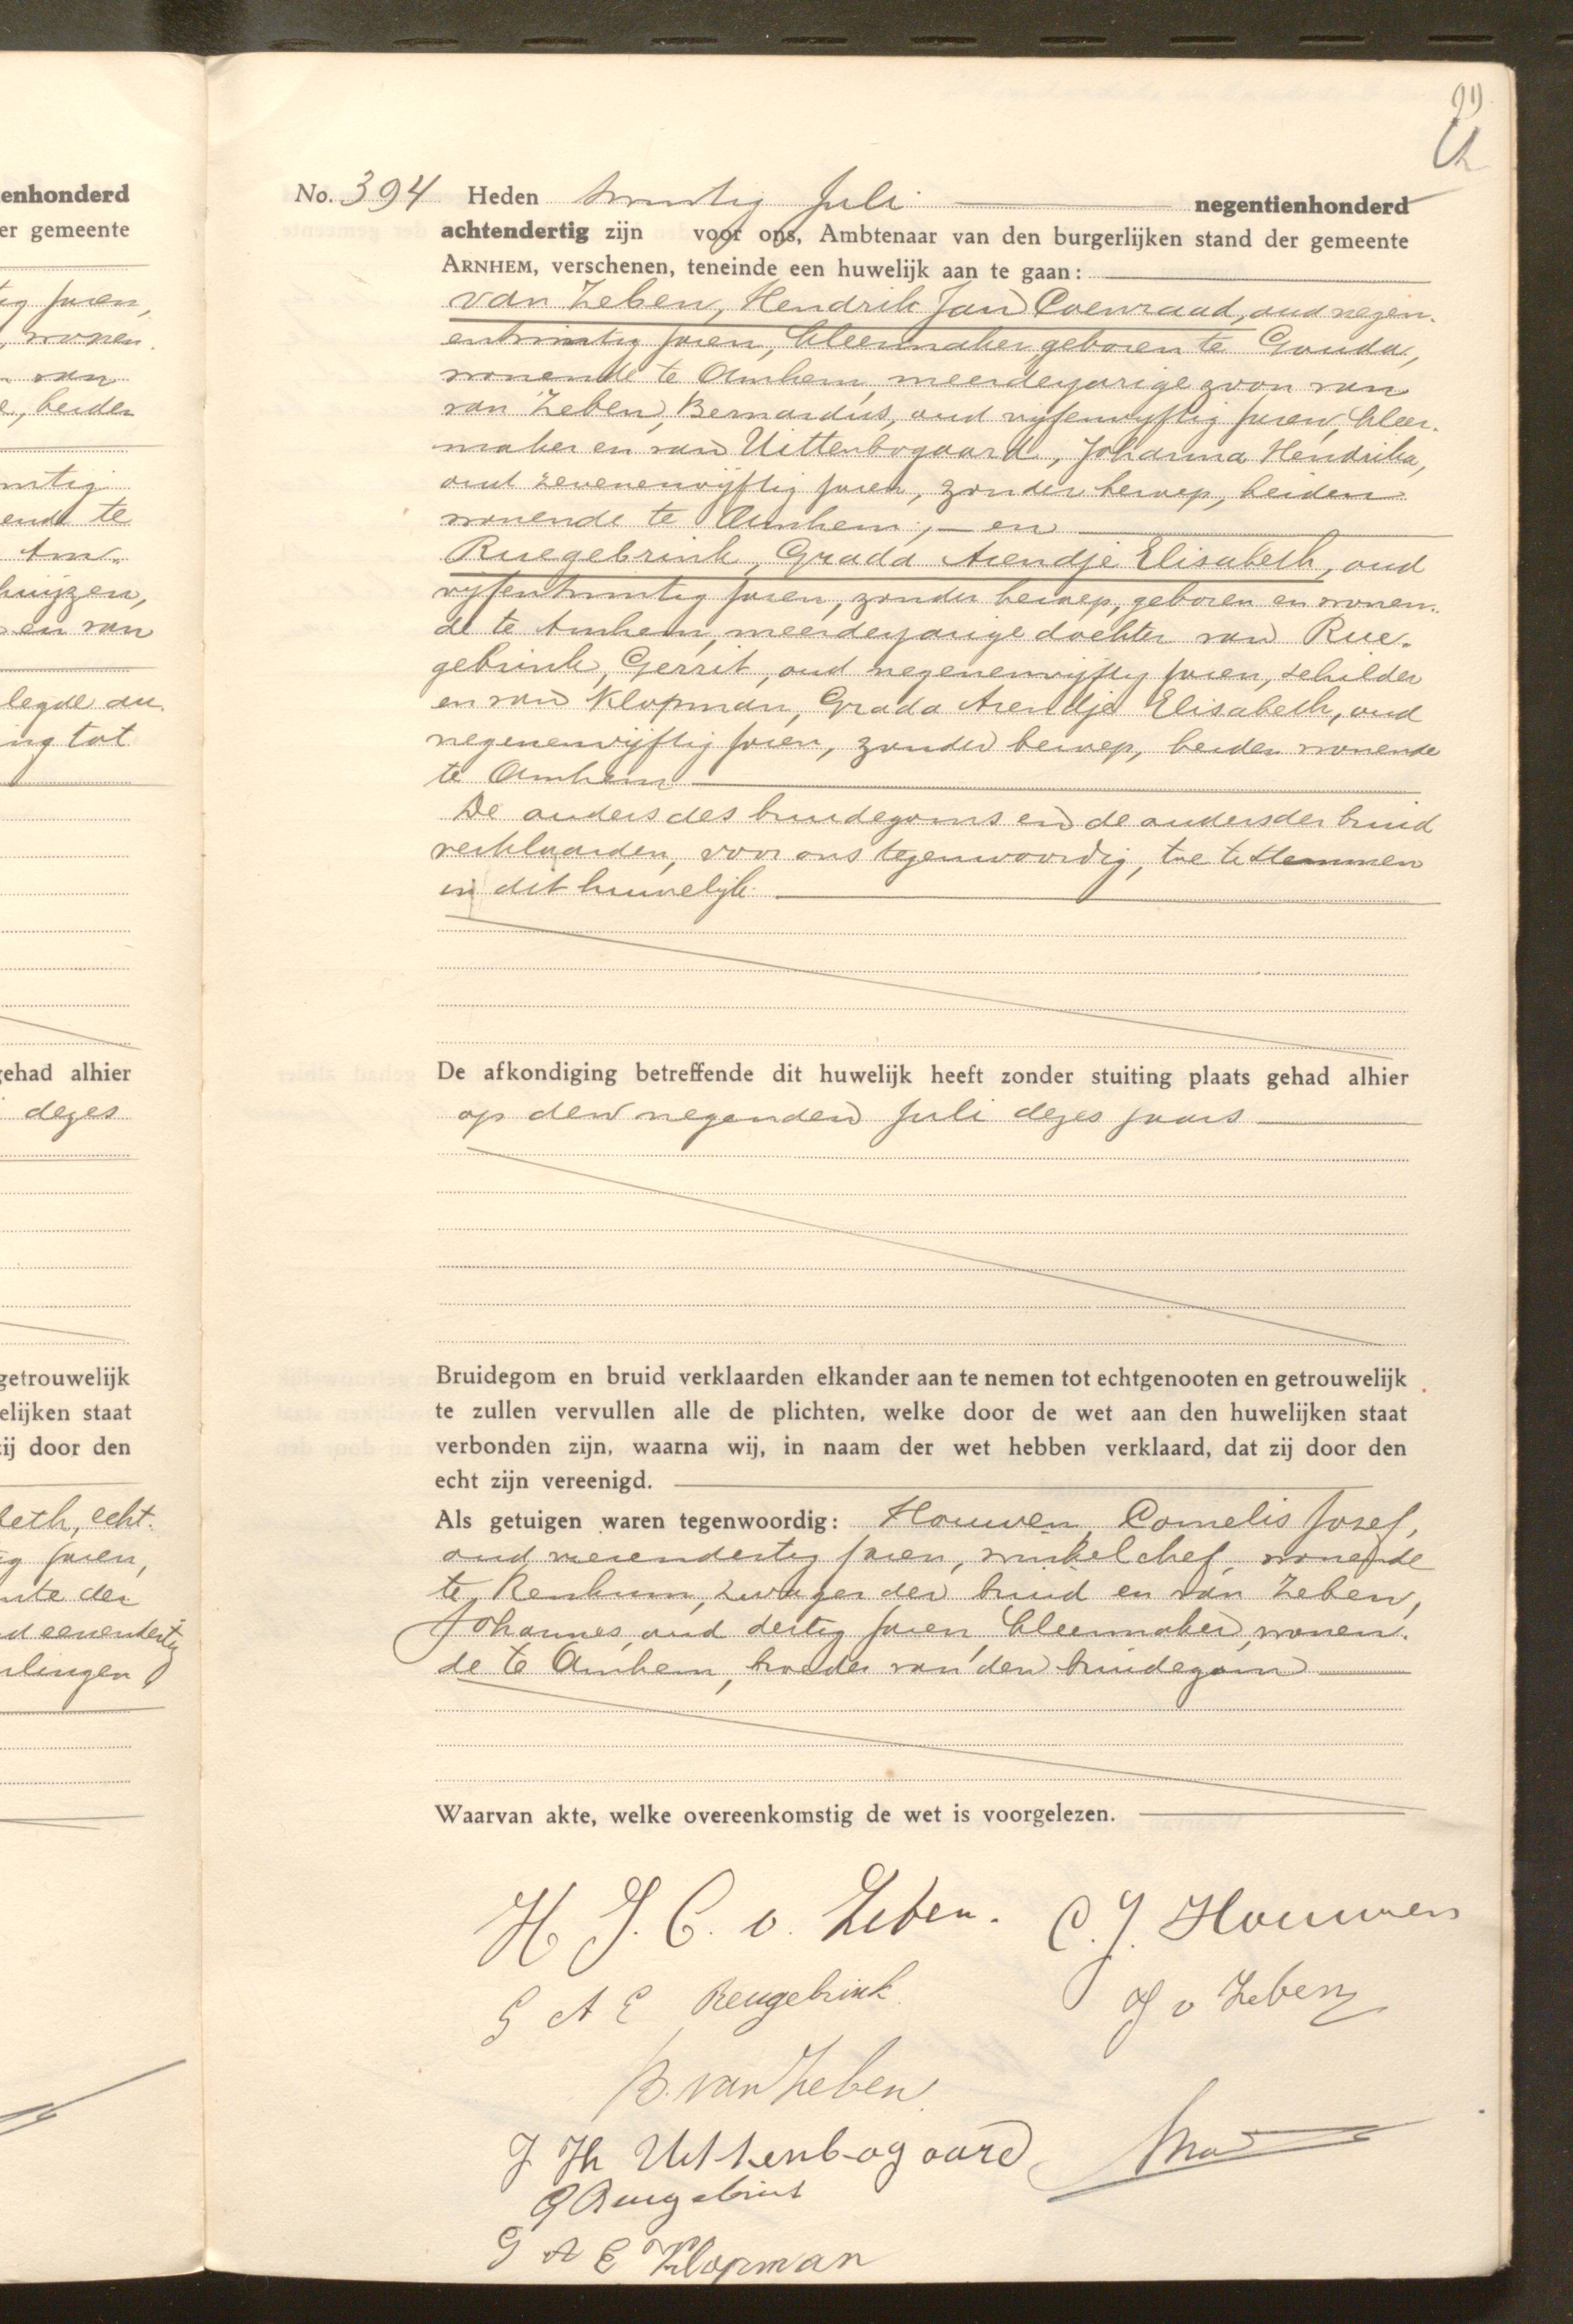 enhonderd
er gemeente
ig jaren,
, wonen-
van
e, beiden
ntig
ende te
huijzen,
en van
legde au
ng tot
gehad alhier
dezes
getrouwelijk
elijken staat
zij door den
beth, echt-
ig jaren,
nte der
d eenendertig
rlingen
No. 394 Heden twintig Juli negentienhonderd
achtendertig zijn voor ons, Ambtenaar van den burgerlijken stand der gemeente
ARNHEM, verschenen, teneinde een huwelijk aan te gaan:
van Zeben, Hendrik Jan Coenraad, oud negen-
entwintig jaren, kleermaker, geboren te Gouda,
wonende te Arnhem, meerderjarige zoon van
van Zeben, Bernardus, oud vijfenvijftig jaren, kleer-
maker en van Uittenbogaard, Johanna Hendrika,
oud zevenenvijftig jaren, zonder beroep, beiden
wonende te Arnhem; — en
Ruegebrink, Grada Arendje Elisabeth, oud
vijfentwintig jaren, zonder beroep, geboren en wonen-
de te Arnhem, meerderjarige dochter van Rue-
gebrink, Gerrit, oud negenenvijftig jaren, schilder
en van Klopman, Grada Arendje Elisabeth, oud
negenenvijftig jaren, zonder beroep, beiden wonende
te Arnhem
De ouders des bruidegoms en de ouders der bruid
verklaarden, voor ons tegenwoordig, toe te stemmen
in dit huwelijk.
De afkondiging betreffende dit huwelijk heeft zonder stuiting plaats gehad alhier
op den negenden Juli dezes jaars
Bruidegom en bruid verklaarden elkander aan te nemen tot echtgenooten en getrouwelijk
te zullen vervullen alle de plichten, welke door de wet aan den huwelijken staat
verbonden zijn, waarna wij, in naam der wet hebben verklaard, dat zij door den
echt zijn vereenigd.
Als getuigen waren tegenwoordig: Houwen, Cornelis Josef,
oud vierendertig jaren, winkelchef, wonende
te Renkum, zwager der bruid en van Zeben,
Johannes, oud dertig jaren, kleermaker, wonen-
de te Arnhem, broeder van den bruidegom
Waarvan akte, welke overeenkomstig de wet is voorgelezen.
H J. C. v. Zeben. C. J. Houwen
G A E Reugebrink J v Zeben
B. van Zeben
J H Uittenbogaard
G Reugebrink
G A E Klopman